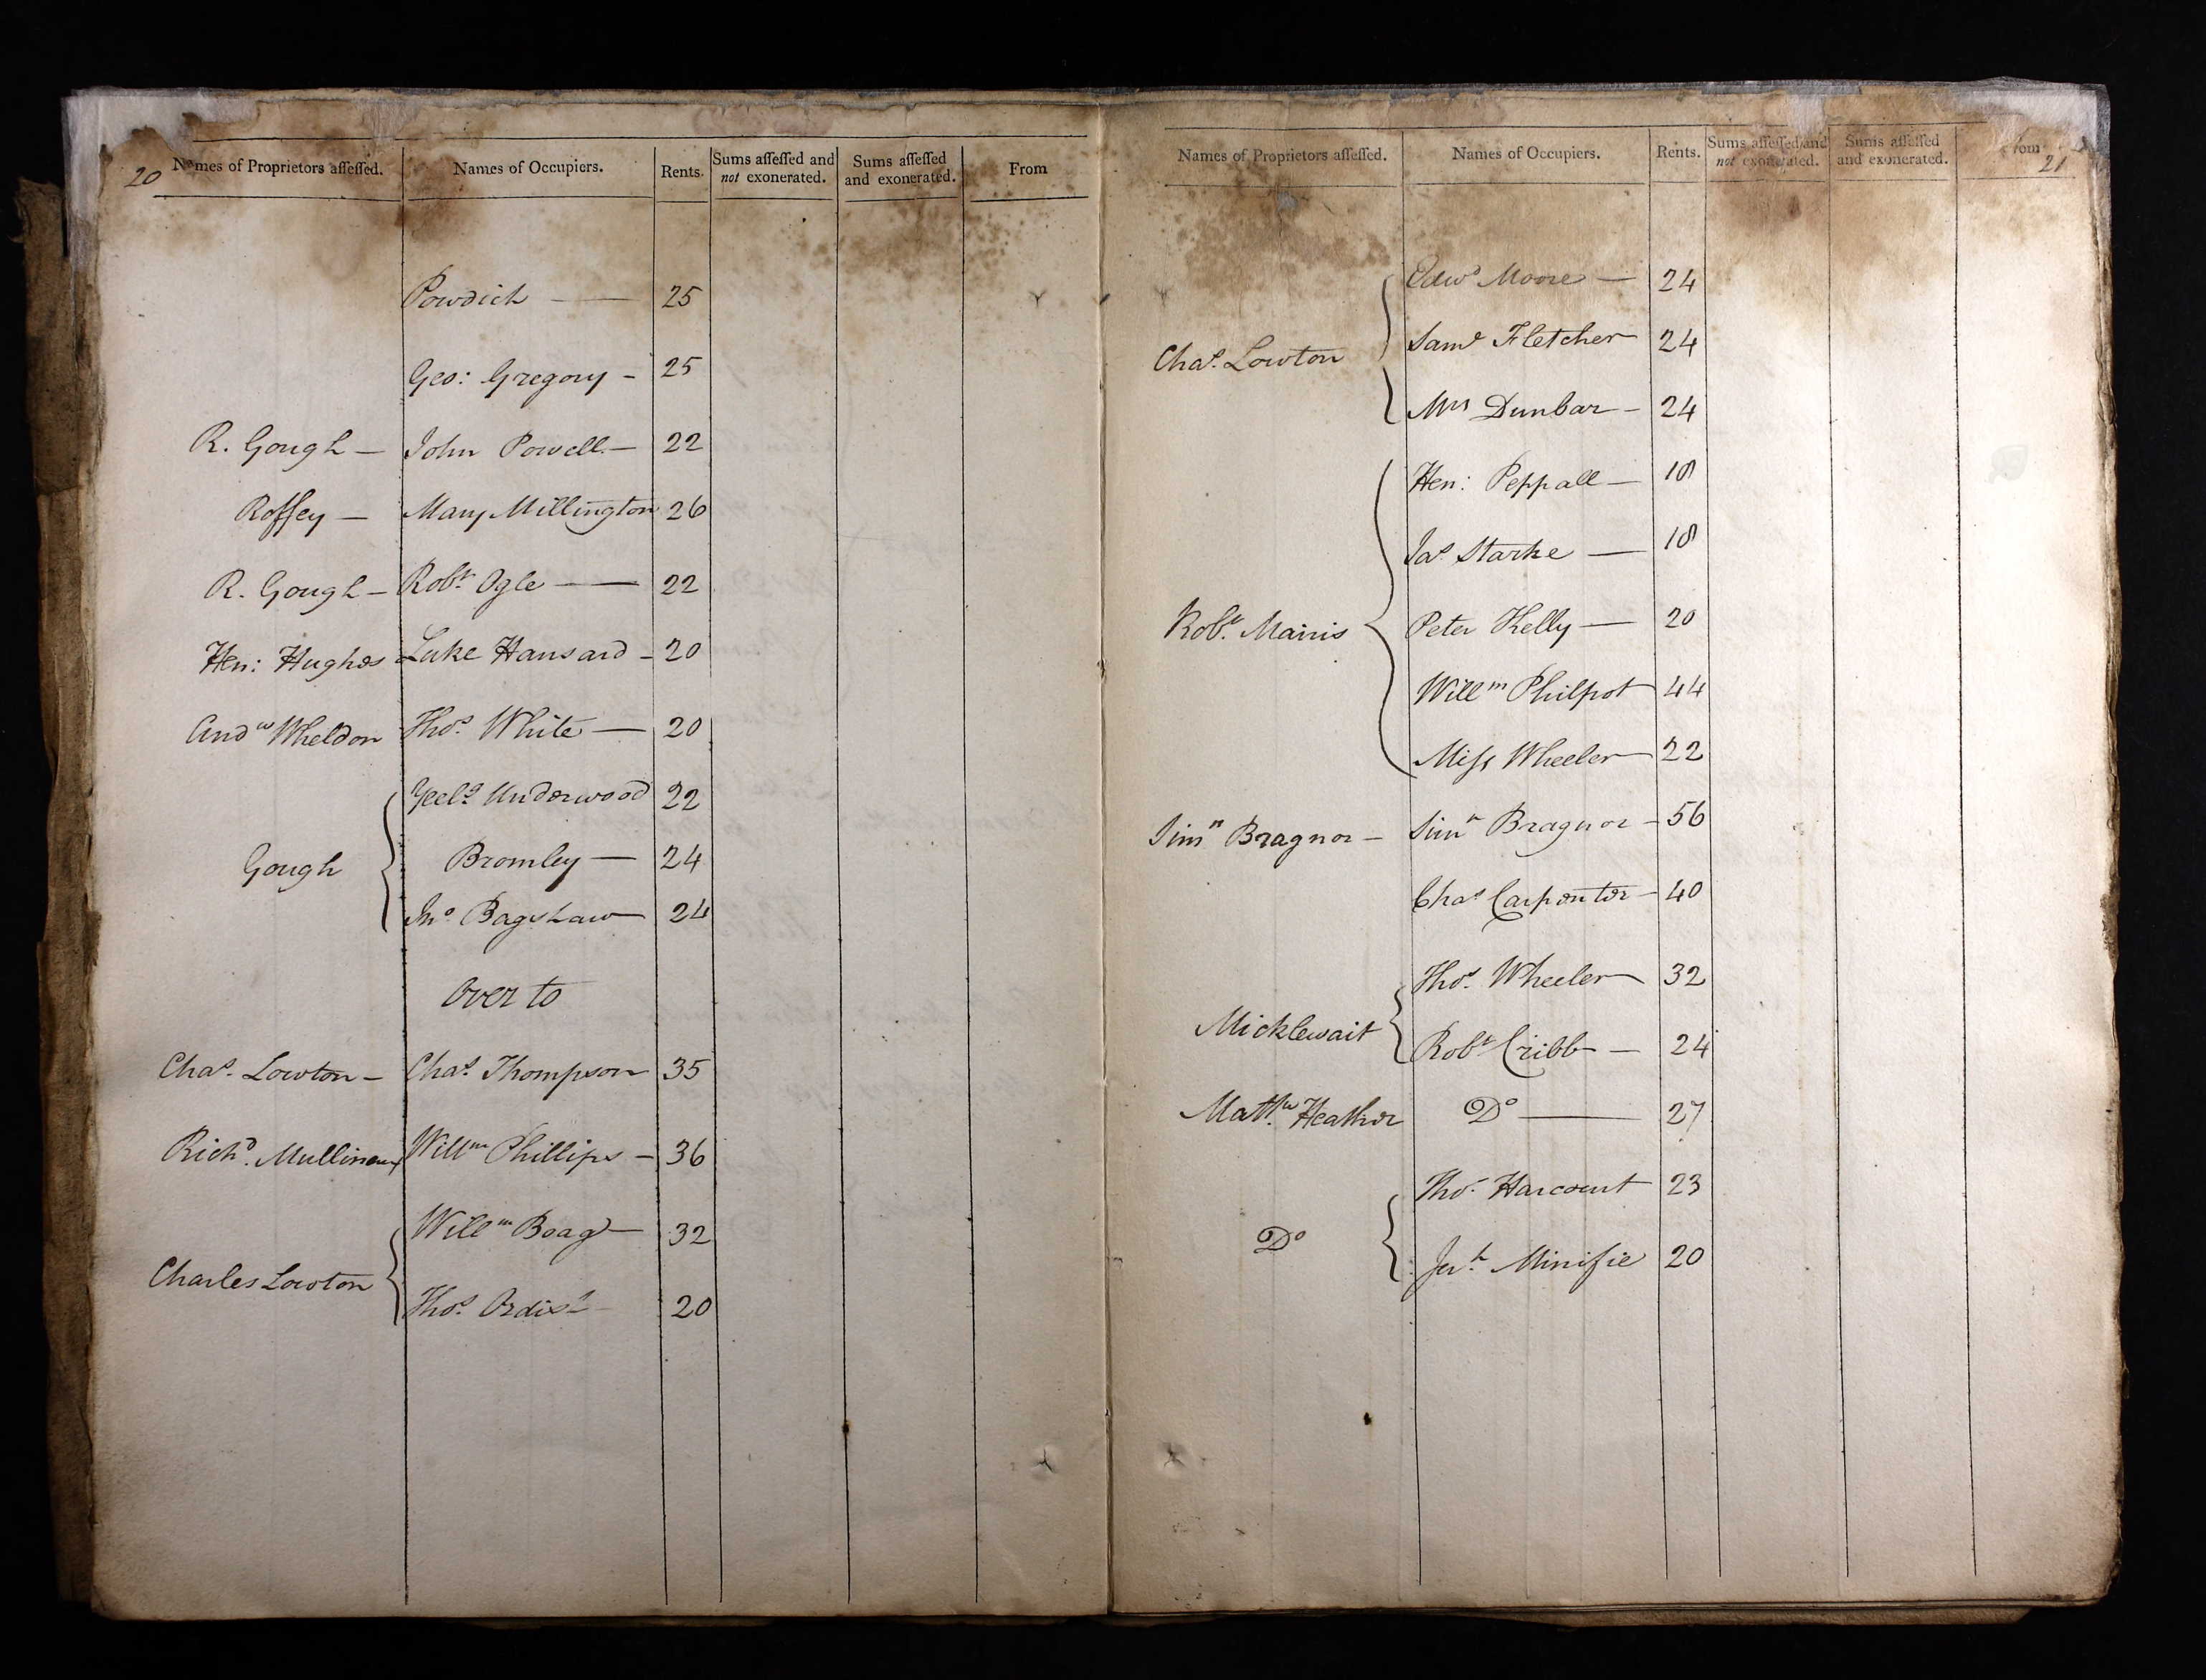 20
Names of Proprietors assessed. Names of Occupiers. Rents. Sums assessed and not exonerated. Sums assessed and exonerated. From
Powdich — 25
Geo: Gregory - 25
R. Gough — John Powell — 22
Roffey — Mary Millington 26
R. Gough — Robt. Ogle — 22
Hen: Hughes Luke Hansard - 20
Andw Wheldon Thos. White — 20
Underwood 22
Gough Bromley — 24
Jno. Bagshaw — 24
Over to
Chas. Lowton - Chas. Thompson 35
Richd. Mullineux Willm Phillips - 36
Willm Boag — 32
Charles Lowton
Thos. Ordish 20
21
Names of Proprietors assessed. Names of Occupiers. Rents. Sums assessed and not exonerated. Sums assessed and exonerated. From
Edwd Moore — 24
Saml Fletcher 24
Chas. Lowton
Mrs Dunbar - 24
Hen: Peppall — 18
Jas. Starke — 18
Robt. Mainis Peter Kelly — 20
Willm Philpot 44
Miss Wheeler 22
Simn Bragnor — Simn Bragnor - 56
Chas Carpenter - 40
Thos. Wheeler 32
Micklewait
Robt Cribb — 24
Matthw. Heather Do — 27
Thos. Harcourt 23
Do
Minifie 20